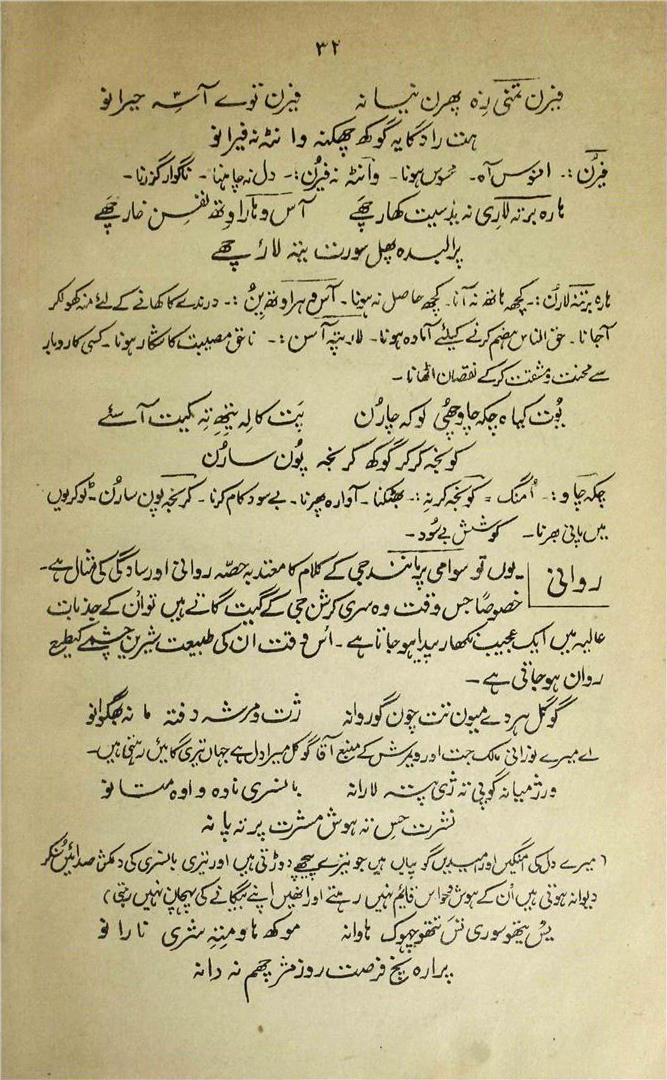 ۳۲
فیرن تمنی رزہ پھرن نیا نہ فیرن توے آسہ حیرانو
ہت راد گایہ گوکھ چھکنہ وانٹہ نہ فیرانو
فیرُن :۔ افسوس آہ۔ محسوس ہونا۔ وانٹہ نہ فیرُن :۔ دل نہ چاہنا۔ ناگوار گزرنا۔
ہارہ برتہ لاری نہ بد سیت کھار چھے آس وہاراوتھ نفسن خار چھے
پرالبدہ پھل سورت پتہ لار چھے
ہارہ برتہ لارُن :۔ کچھ ہاتھ نہ آنا۔ کچھ حاصل نہ ہونا۔ آس وہراوتھ ین :۔ درندے کا کھانے کے لئے منہ کھول کر
آجانا۔ حق الناس ہضم کرنے کیلئے آمادہ ہونا۔ لار پتہ آسن :۔ ناحق مصیبت کا شکار ہونا۔ کسی کاروبار
سے محنت و مشقت کرکے نقصان اٹھانا۔
بُوت کہاہ چکہ چاو چھی لوکہ چارُن پَت کالہ پتھ تہ کیت آسئے
کونجہ کرکر گوکھ کرنجہ پُون سارُن
چکہ چاو :۔ اُمنگ = کونجہ کرنہ :۔ بھٹکنا۔ آوارہ پھرنا۔ بے سود کام کرنا۔ کرنجہ پون سارُن۔ ٹوکریوں
میں پانی بھرنا۔ کوشش بے سُود۔
روانی ۔یوں تو سوامی پرمانند جی کے کلام کا معتد بہ حصّہ روانی اور سادگی کی مثال ہے۔
خصوصاً جس وقت وہ سری کرشن جی کے گیت گاتے ہیں تو اُن کے جذبات
عالیہ میں ایک عجیب نکھار پیدا ہوجاتا ہے۔ اُس وقت ان کی طبیعت شیریں چشمے کیطرح
رواں ہوجاتی ہے۔
گوکل ہردے میون تت چون گوروانہ ژت ومرشہ دفتہ مانہ بھگوانو
اے میرے نورانی مالک چت اور ویمرش کے منبع آقا گوکل میرا دل ہے جہاں تیری گائیں رہتی ہیں۔
ورژمیانہ گوپی تہ ژی پتہ لارانہ بانسری نادہ واوہ متانو
نشرت حس نہ ہوش مشرت پرتہ پانہ
(میرے دل کی امنگیں اور امیدیں گوپیاں ہیں جو تیرے پیچھے دوڑتی ہیں اور تیری بانسری کی دلکش صدائیں سُنکر
دیوانہ ہوتی ہیں اُن کے ہوش حواس قائم نہیں رہتے اور انھیں اپنے بیگانے کی پہچان نہیں رہتی)
یس ہتھ سوری تس تتھ ہاوانہ موکھ ہاومنہ شری نارانو
پرارہ فرصت روز مژ چھم نہ دانہ